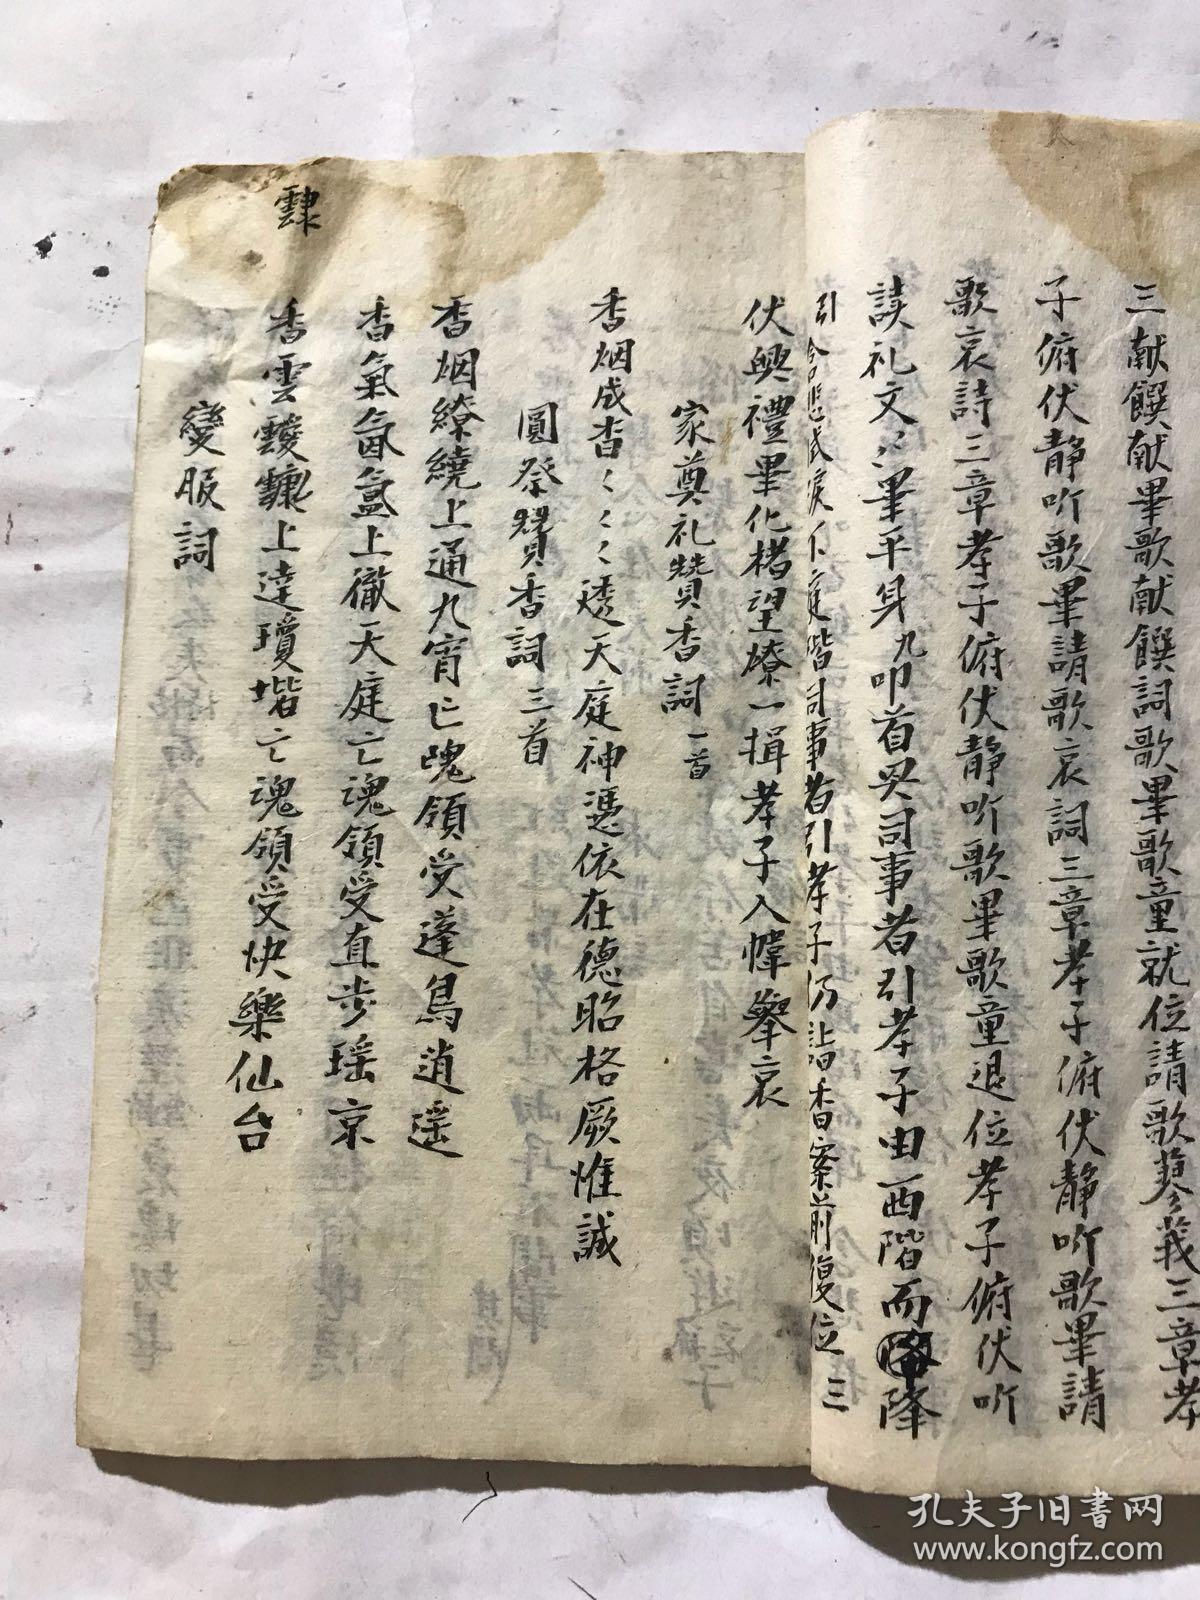 三献饌献畢歌献饌詞歌畢歌童就位請歌蓼莪三章孝
子俯伏静听歌畢請歌哀詞三章孝子俯伏静听歌畢請
歌哀詩三章孝子俯伏静听歌畢歌童退位孝子俯伏听
讀礼文〻畢平身九叩首哭司事者引孝子由西階而降
引 下 階司事者引孝子仍詣香案前復位 三
伏興禮畢化楮望燎一揖孝子入幃舉哀
家奠礼贊香詞一首
香烟成杳〻〻透天庭神憑依在德昭格厥惟誠
圓祭贊香詞三首
香烟繚繞上通九宵亡魂領受蓬島逍遥
香氣氤氲上徹天庭亡魂領受直步瑶京
香雲靉靆上達瓊堦亡魂領受快樂仙台
變服詞
孔夫子旧书网
www.kongfz.com